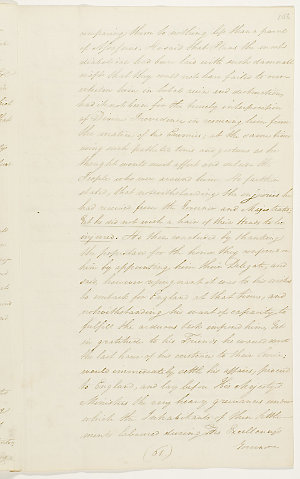 comparing them to nothing less than a parcel
of Assassins. He said that Plans the most
diabolical had been laid with such damnable
craft that they could not have failed to over
whelm him in total ruin and destruction,
had it not been for the timely interposition
of Divine Providence in rescuing him from
the malice of his Enemies; at the same time
using such pathetic tones and gestures as he
thought would most affect and seduce the
People who were around him. He further
stated, that notwithstanding the injuries he
had received from the Governor and Magistrates,
yet he did not wish a hair of their heads to be
injured. He then concluded by thanking
the populace for the honor they conferred on
him by appointing him their Delegate, and
said however repugnant it was to his wishes
to embark for England at that time, and
notwithstanding his want of capacity to
fulfill the arduous task imposed on him, yet
in gratitude to his Friends he would
the last hour of his existence to their cause,
would immediately settle his affairs, proceed
to England, and lay before His Majesty's
Ministers the very heavy grievances under
which the Inhabitants of these Settle
ments laboured during His Excellency
Governor
(61)